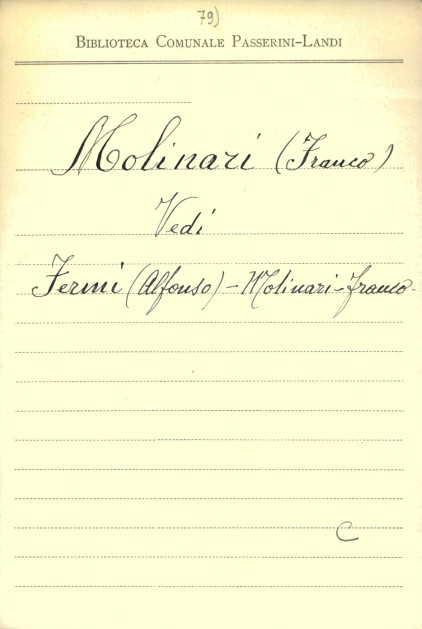 79)
BIBLIOTECA COMUNALE PASSERINI-LANDI
Molinari (Franco)
Vedi
Fermi (Alfonso) - Molinari - Franco -
C